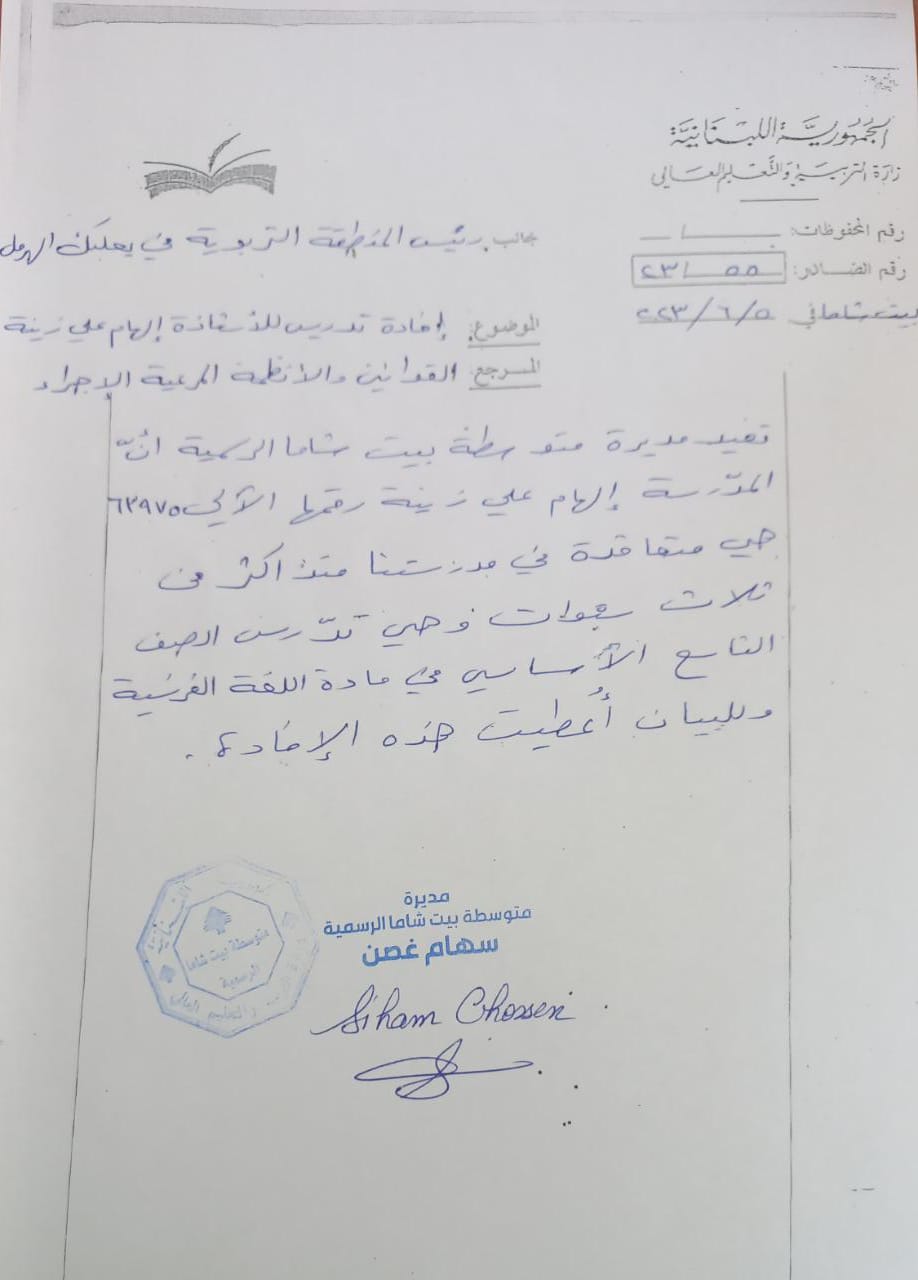 الجمهورية اللبنانية
وزارة التربية والتعليم العالي
رقم المحفوظات:
رقم الصادر: ٥٥/٢٣
بيت شاما في ٢٢٣/٦/٥
جانب رئيس المنطقة التربوية في بعلبك الهرمل
الموضوع: إفادة تدريس للأستاذة إلهام علي زينة
المرجع: القوانين والأنظمة المرعية الإجراء
تفيد مديرة متوسطة بيت شاما الرسمية أنّ
المدّرسة إلهام علي زينة رقمها الآلي ٦٣٩٧٥
هي متعاقدة في مدرستنا منذ اكثر من
ثلاث سنوات وهي تدّرس الصف
التاسع الأساسي في مادة اللغة الفرنسية
وللبيان أُعطيت هذه الإفادة.
مديرة
متوسطة بيت شاما الرسمية
سهام غصن
Siham Ghossen
متوسطة بيت شاما
الرسمية
والتعليم العالي